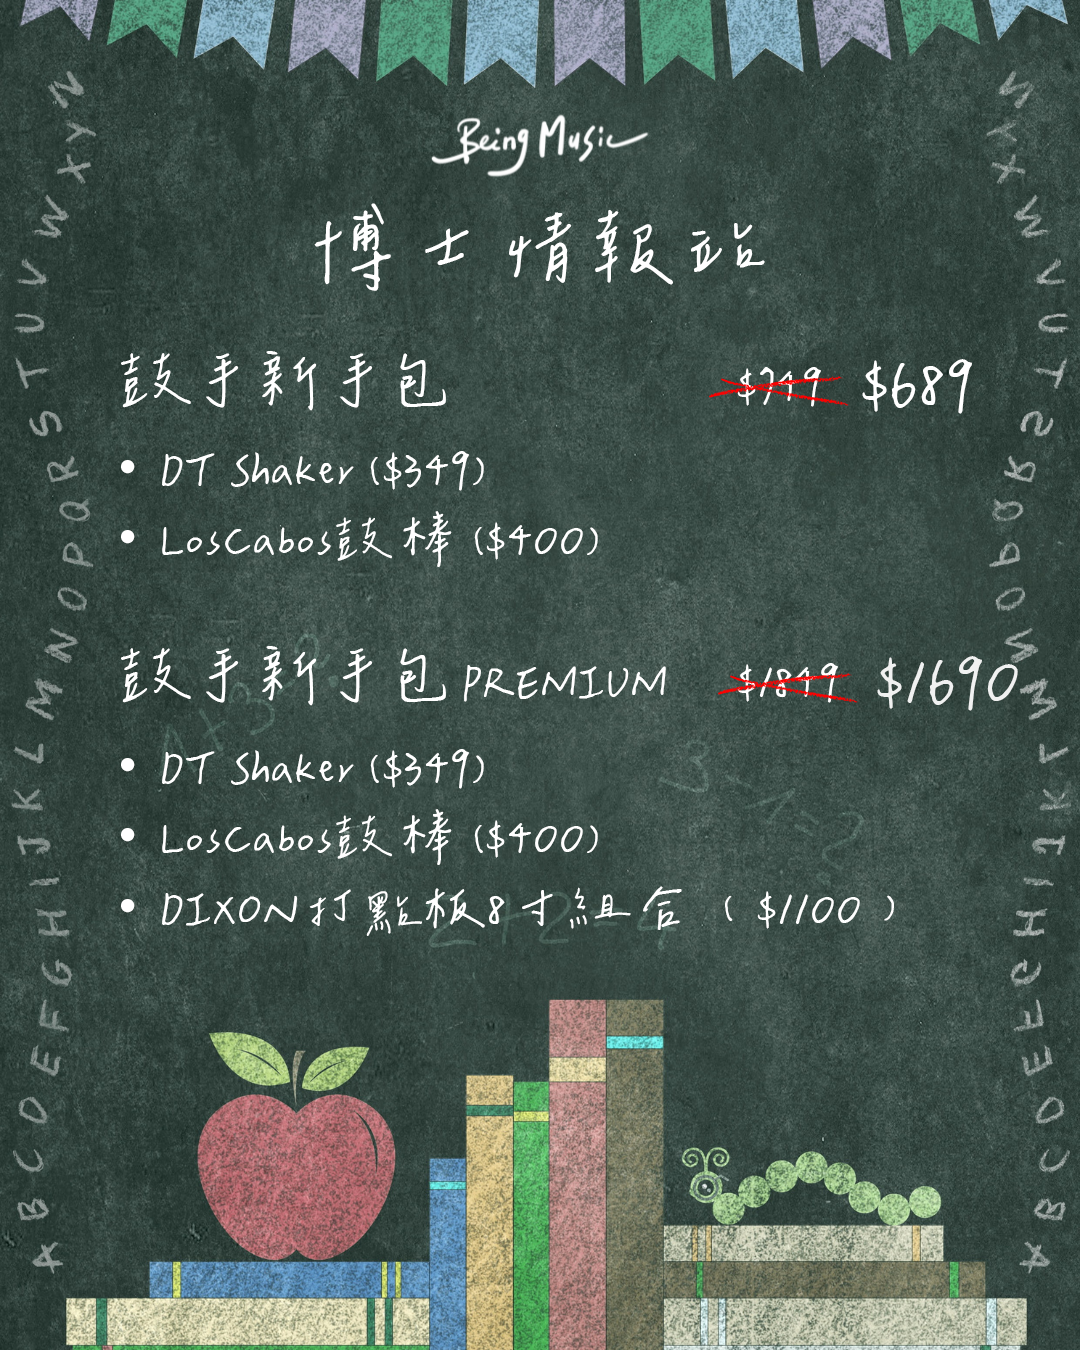 Being Music
博士情報站
鼓手新手包 $749 $689
• DT Shaker ($349)
• LosCabos鼓棒 ($400)
鼓手新手包 PREMIUM $1849 $1690
• DT Shaker ($349)
• LosCabos鼓棒 ($400)
• DIXON打點板8寸組合 ( $1100 )
2+2=4